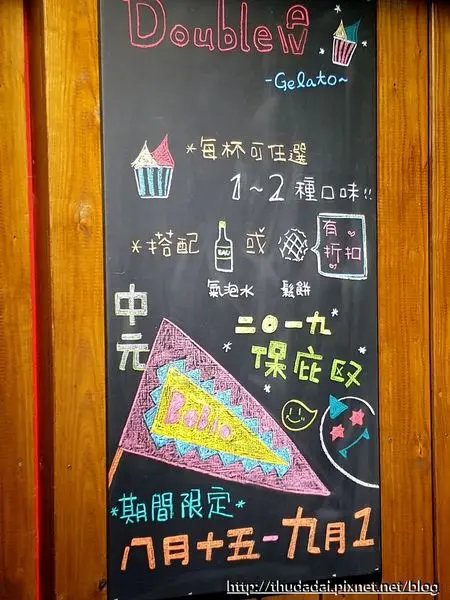 Double
-Gelato~
*每杯可任選
1~2種口味!!
*搭配 或 有折扣
氣泡水 鬆餅
中元
二〇一九
保庇 
Bobio
*期間限定*
八月十五-九月1
http://thudadai.pixnet.net/blog